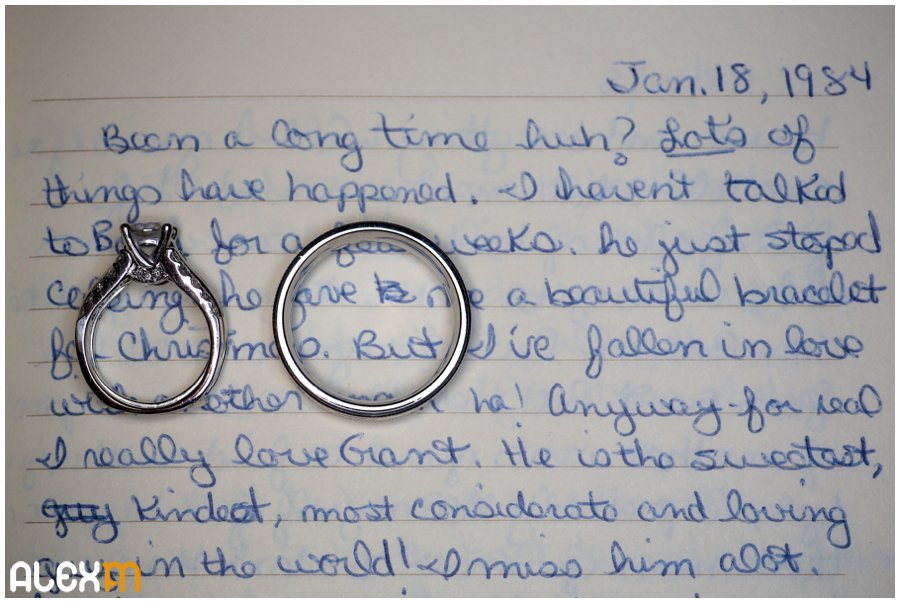 Jan. 18, 1984
Been a long time huh? Lots of
things have happened. I haven't talked
to for a few weeks. he just stoped
calling he gave me a beautiful bracelet
for Christmas. But I've fallen in love
with another man ha! Anyway-for real
I really love Grant. He is the sweetest,
guy kindest, most considerate and loving
in the world! I miss him alot.
ALEXM